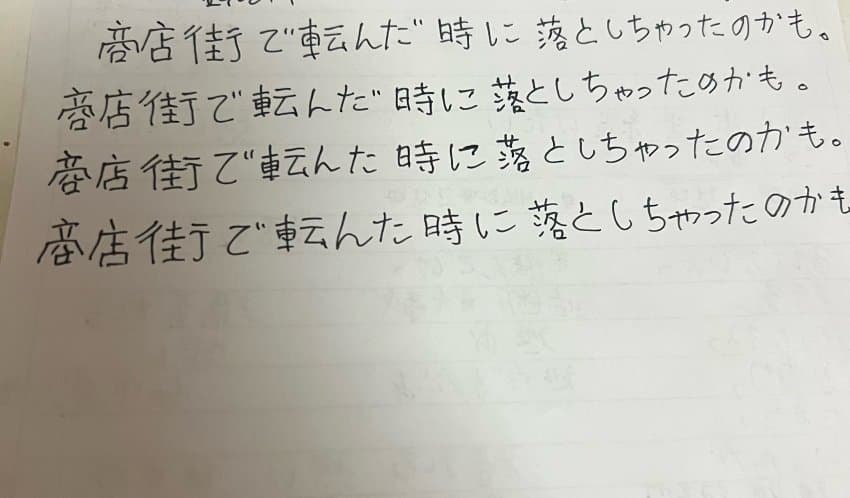 商店街で転んだ時に落としちゃったのかも。
商店街で転んだ時に落としちゃったのかも。
商店街で転んた時に落としちゃったのかも。
商店街で転んた時に落としちゃったのかも